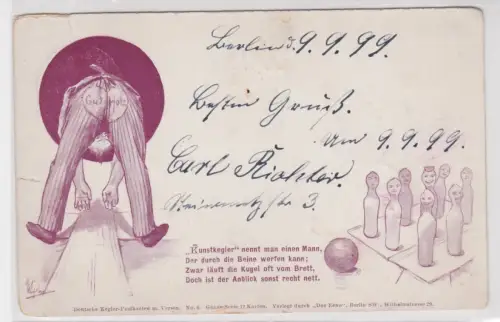 Berlin d. 9. 9. 99.
Gut Holz
Besten Gruß.
Am 9. 9. 99.
Carl Richter.
Steinmetzstr 3.
„Kunstkegler“ nennt man einen Mann,
Der durch die Beine werfen kann;
Zwar läuft die Kugel oft vom Brett,
Doch ist der Anblick sonst recht nett.
Deutsche Kegler-Postkarten m. Versen. No. Verlegt durch „Das Echo“, Berlin SW., Wilhelmstrasse 29.